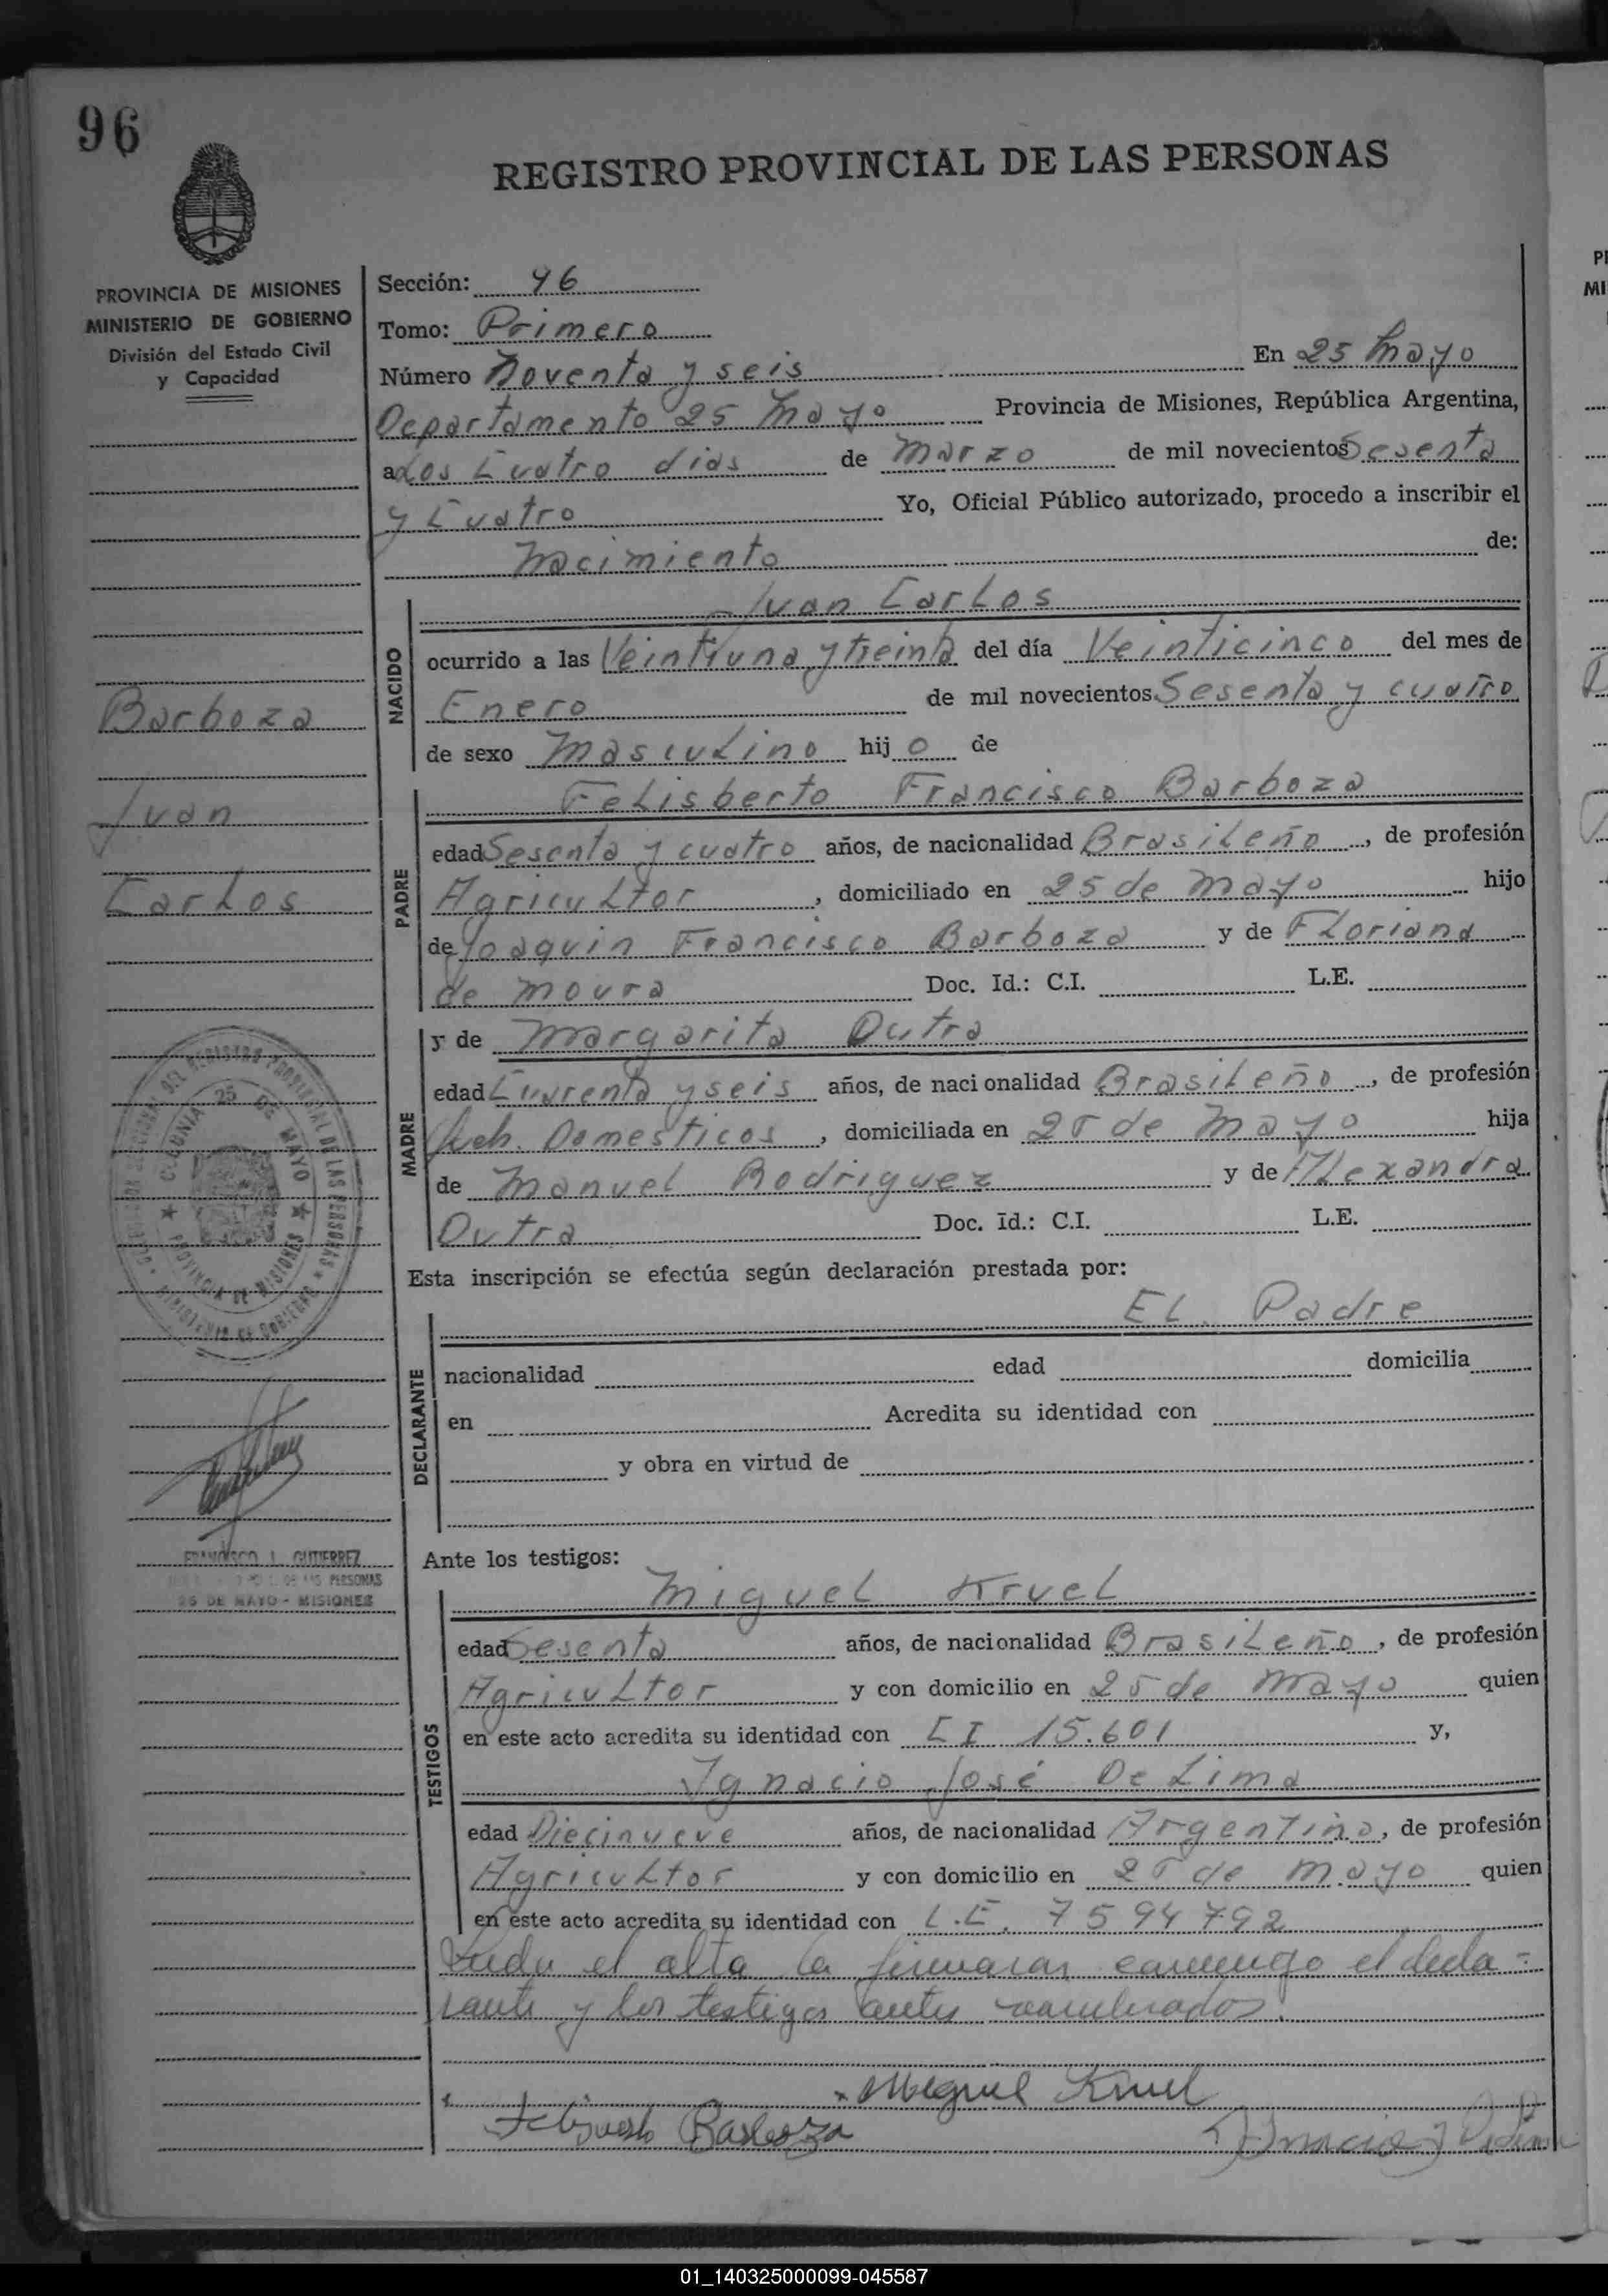 96
REGISTRO PROVINCIAL DE LAS PERSONAS
PROVINCIA DE MISIONES
MINISTERIO DE GOBIERNO
División del Estado Civil
y Capacidad
Sección: 46
Tomo: Primero
Número Noventa y seis En 25 Mayo
Departamento 25 Mayo Provincia de Misiones, República Argentina,
a Los Cuatro dias de Marzo de mil novecientos Sesenta
y Cuatro Yo, Oficial Público autorizado, procedo a inscribir el
Nacimiento de:
NACIDO
Juan Carlos
ocurrido a las Veintiuna y treinta del día Veinticinco del mes de
Enero de mil novecientos Sesenta y cuatro
de sexo Masculino hijo de
Barboza
Juan
Carlos
PADRE
Felisberto Francisco Barboza
edad Sesenta y cuatro años, de nacionalidad Brasileño, de profesión
Agricultor, domiciliado en 25 de Mayo hijo
de Joaquin Francisco Barboza y de Floriana
de Moura Doc. Id.: C.I. L.E.
MADRE
y de Margarita Dutra
edad Cuarenta y seis años, de nacionalidad Brasileño, de profesión
Domesticos, domiciliada en 25 de Mayo hija
de Manuel Rodriguez y de Alexandra
Dutra Doc. Id.: C.I. L.E.
COLONIA 25 DE MAYO
PROVINCIA DE MISIONES
MINISTERIO DE GOBIERNO
Esta inscripción se efectúa según declaración prestada por:
DECLARANTE
El Padre
nacionalidad edad domicilia
en Acredita su identidad con
y obra en virtud de
FRANCISCO I. GUTIERREZ
DE LAS PERSONAS
25 DE MAYO - MISIONES
Ante los testigos:
TESTIGOS
Miguel Kruel
edad Sesenta años, de nacionalidad Brasileño, de profesión
Agricultor y con domicilio en 25 de Mayo quien
en este acto acredita su identidad con CI 15.601 y,
Ygnacio José De Lima
edad Diecinueve años, de nacionalidad Argentino, de profesión
Agricultor y con domicilio en 25 de Mayo quien
en este acto acredita su identidad con L.E. 7594792
el alta la firmaran conmigo el decla=
rante y los testigos antes nombrados.
Miguel Kruel
Barboza
01_140325000099-045587